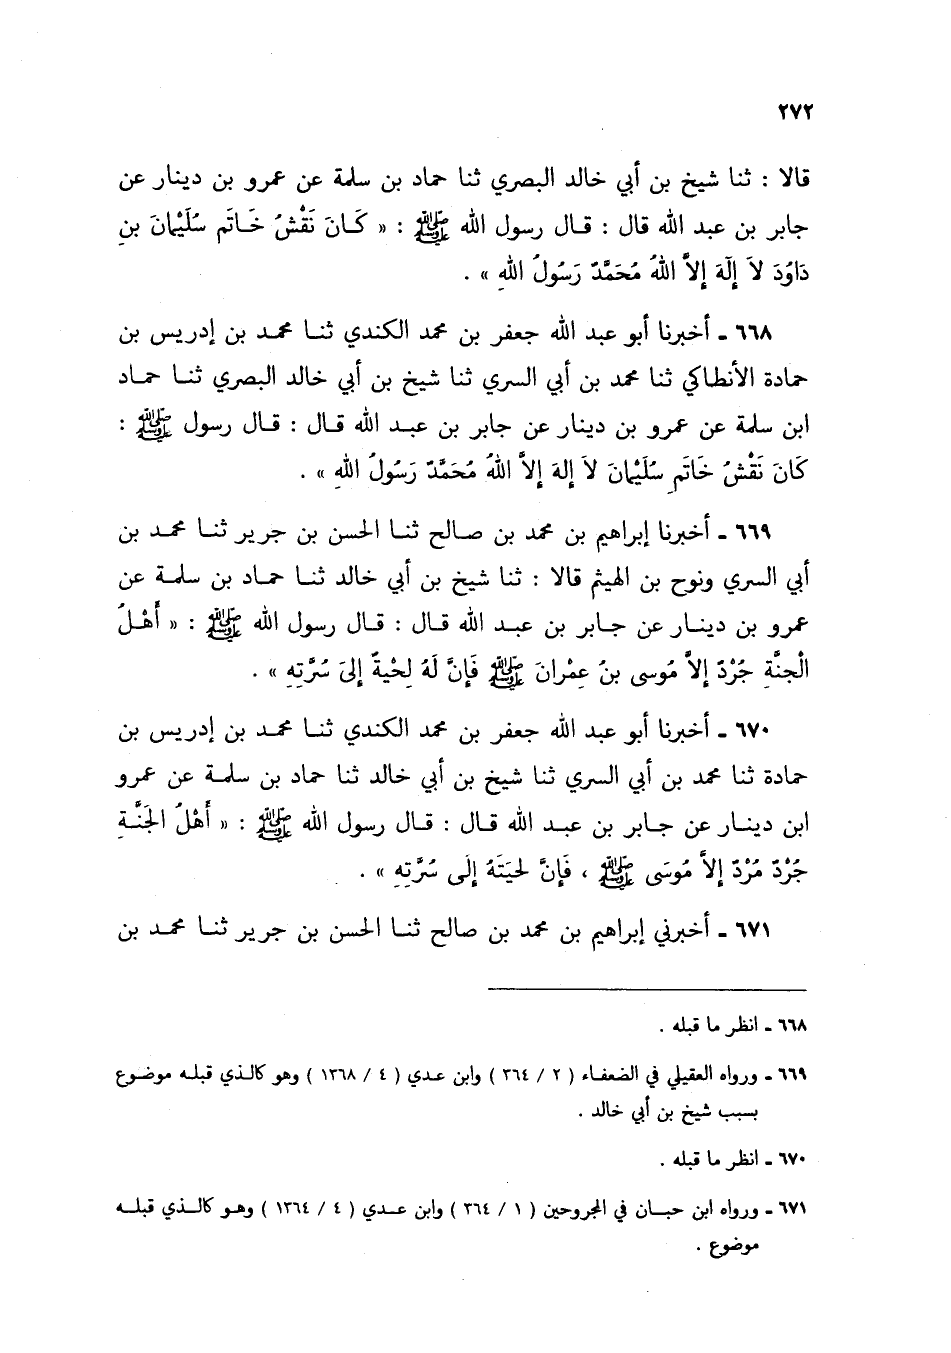 ٢٧٢
قالا : ثنا شيخ بن أبي خالد البصري ثنا حماد بن سلمة عن عمرو بن دينار عن
جابر بن عبد الله قال : قال رسول الله ﷺ : « كَانَ نَقْشُ خَاتَمِ سُلَيْمَانَ بنِ
دَاوُدَ لاَ إِلَهَ إِلاَّ اللهُ مُحَمَّدٌ رَسُولُ اللهِ » .
٦٦٨ ـ أخبرنا أبو عبد الله جعفر بن محمد الكندي ثنا محمد بن إدريس بن
حمادة الأنطاكي ثنا محمد بن أبي السري ثنا شيخ بن أبي خالد البصري ثنا حماد
ابن سلمة عن عمرو بن دينار عن جابر بن عبد الله قال : قال رسول ﷺ :
كَانَ نَقْشُ خَاتَمِ سُلَيْمَانَ لاَ إِلهَ إِلاَّ اللهُ مُحَمَّدٌ رَسُولُ اللهِ » .
٦٦٩ ـ أخبرنا إبراهيم بن محمد بن صالح ثنا الحسن بن جرير ثنا محمد بن
أبي السري ونوح بن الهيثم قالا : ثنا شيخ بن أبي خالد ثنا حماد بن سلمة عن
عمرو بن دينار عن جابر بن عبد الله قال : قال رسول الله ﷺ : « أَهْلُ
الْجنَّةِ جُرْدٌ إِلاَّ مُوسى بنُ عِمْرانَ ﷺ فَإِنَّ لَهُ لِحْيةٌ إِلىَ سُرَّتِهِ » .
٦٧٠ ـ أخبرنا أبو عبد الله جعفر بن محمد الكندي ثنا محمد بن إدريس بن
حمادة ثنا محمد بن أبي السري ثنا شيخ بن أبي خالد ثنا حماد بن سلمة عن عمرو
ابن دينار عن جابر بن عبد الله قال : قال رسول الله ﷺ : « أَهْلُ الجَنَّةِ
جُرْدٌ مُرْدٌ إِلاَّ مُوسَى ﷺ ، فَإِنَّ لحيَتَهُ إِلَى سُرَّتِهِ » .
٦٧١ ـ أخبرني إبراهيم بن محمد بن صالح ثنا الحسن بن جرير ثنا محمد بن
٦٦٨ ـ انظر ما قبله .
٦٦٩ ـ ورواه العقيلي في الضعفاء ( ٢ / ٣٦٤ ) وابن عدي ( ٤ / ١٣٦٨ ) وهو كالذي قبله موضوع
بسبب شيخ بن أبي خالد .
٦٧٠ ـ انظر ما قبله .
٦٧١ ـ ورواه ابن حبان في المجروحين ( ١ / ٣٦٤ ) وابن عدي ( ٤ / ١٣٦٤ ) وهو كالذي قبله
موضوع .